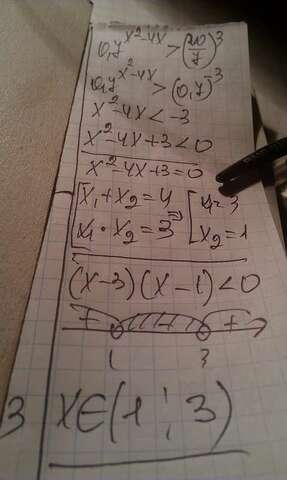 0,7^{x²-4x} > (20/7)^3
0,7^{x²-4x} > (0,7)^{-3}
x²-4x < -3
x²-4x+3 < 0
x²-4x+3=0
[x₁+x₂=4
x₁·x₂=3 ⇒ [x₁=3
x₂=1
(x-3)(x-1)<0
+ - +
1 3
3
x∈(1;3)